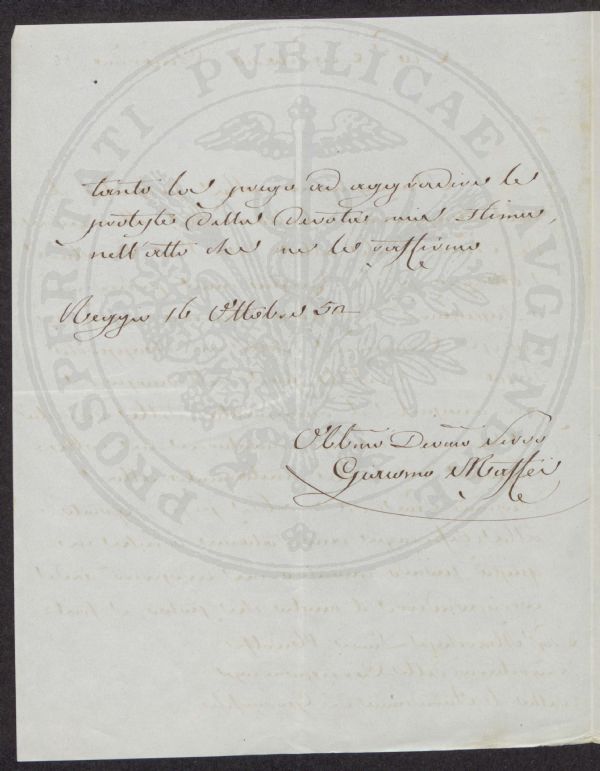 PROSPERITATI PVBLICAE AVGENDAE
tanto La prego ad aggradire le
proteste della devota mia stima,
nell'atto che me le raffermo
Reggio 16 Ottobre 52
Obbmo Devmo Servo
Giacomo Maffei